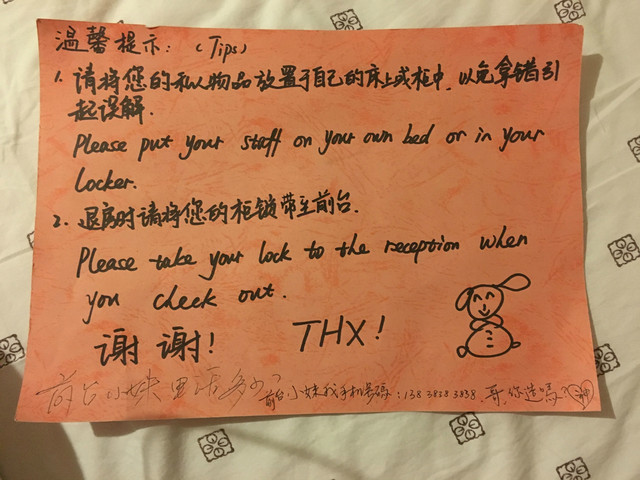 温馨提示：（Tips）
1. 请将您的私人物品放置于自己的床上或柜中，以免拿错引
起误解.
Please put your staff on your own bed or in your
locker.
2. 退房时请将您的柜锁带至前台.
Please take your lock to the reception when
you check out.
谢谢!
THX!
前台小妹电话多少?
前台小妹我手机号码：138 3838 3838 哥,你造吗?